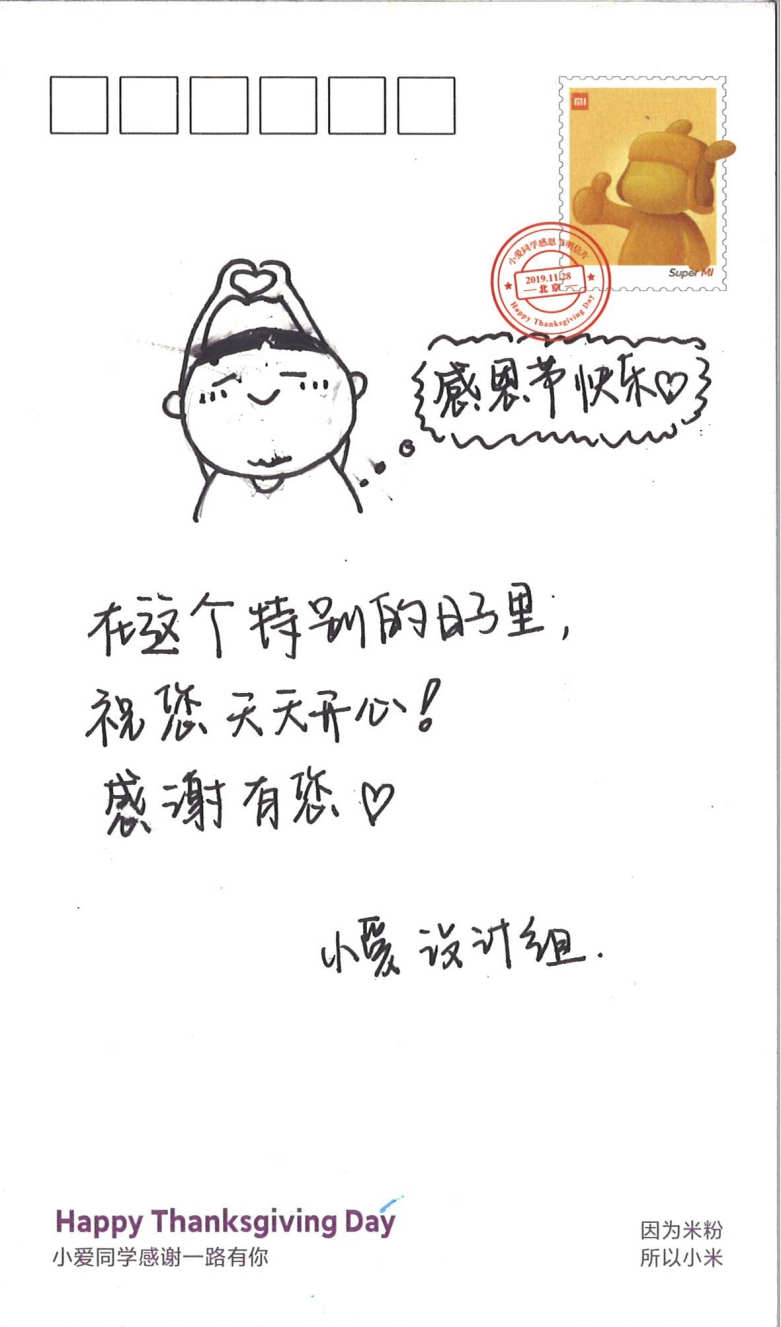 MI
Super MI
小爱同学感恩节明信片
2019.11.28
北京
Happy Thanksgiving Day
感恩节快乐♡
在这个特别的日子里,
祝您天天开心!
感谢有您♡
小爱设计组.
Happy Thanksgiving Day
小爱同学感谢一路有你
因为米粉
所以小米